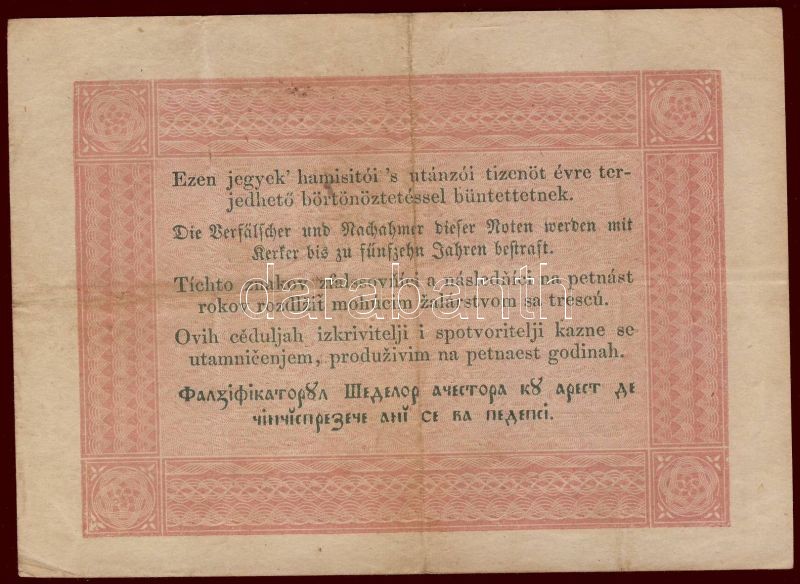 Ezen jegyek’ hamisitói ’s utánzói tizenöt évre ter-
jedhető börtönöztetéssel büntettetnek.
Die Verfälscher und Nachahmer dieser Noten werden mit
Kerker bis zu fünfzehn Jahren bestraft.
Tíchto znakov zfalšovňíci a následňíci na petnást
rokov rozdlžiť mohúcim žalárstvom sa trescú.
darabanth
Ovih céduljah izkrivitelji i spotvoritelji kazne se
utamničenjem, produživim na petnaest godinah.
Фалзіфікаторꙋл Шеделор ачестора кꙋ арест де
чінчіспрезече анĭ се ва педепсі.